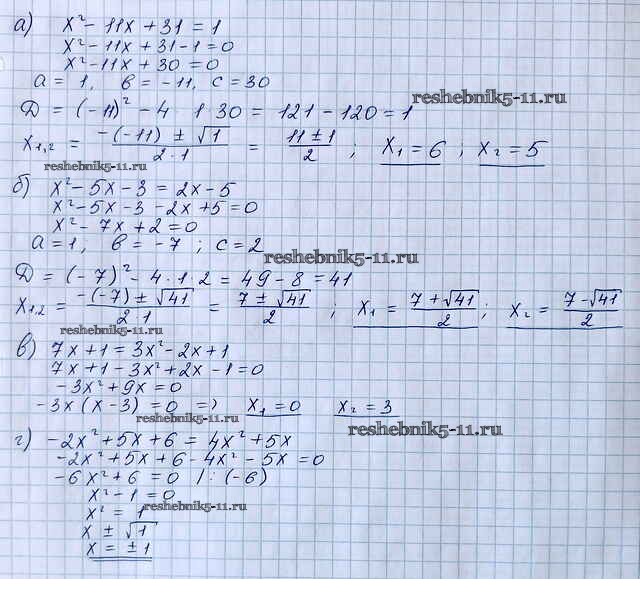 а) x² - 11x + 31 = 1
x² - 11x + 31 - 1 = 0
x² - 11x + 30 = 0
a = 1, в = -11, c = 30
reshebnik5-11.ru
Д = (-11)² - 4 1 30 = 121 - 120 = 1
x1,2 = (-(-11) ± √1) / (2·1) = (11 ± 1) / 2 ; x1 = 6 ; x2 = 5
reshebnik5-11.ru
б) x² - 5x - 3 = 2x - 5
x² - 5x - 3 - 2x + 5 = 0
x² - 7x + 2 = 0
a = 1, в = -7 ; c = 2
reshebnik5-11.ru
Д = (-7)² - 4·1·2 = 49 - 8 = 41
x1,2 = (-(-7) ± √41) / (2·1) = (7 ± √41) / 2 ; x1 = (7 + √41) / 2 ; x2 = (7 - √41) / 2
reshebnik5-11.ru
в) 7x + 1 = 3x² - 2x + 1
7x + 1 - 3x² + 2x - 1 = 0
-3x² + 9x = 0
-3x (x - 3) = 0 => x1 = 0 x2 = 3
reshebnik5-11.ru
reshebnik5-11.ru
г) -2x² + 5x + 6 = 4x² + 5x
-2x² + 5x + 6 - 4x² - 5x = 0
-6x² + 6 = 0 /: (-6)
x² - 1 = 0
x² = 1
reshebnik5-11.ru
x ± √1
x = ±1